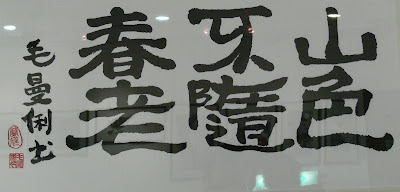 山色
不隨
春老
毛曼俐书